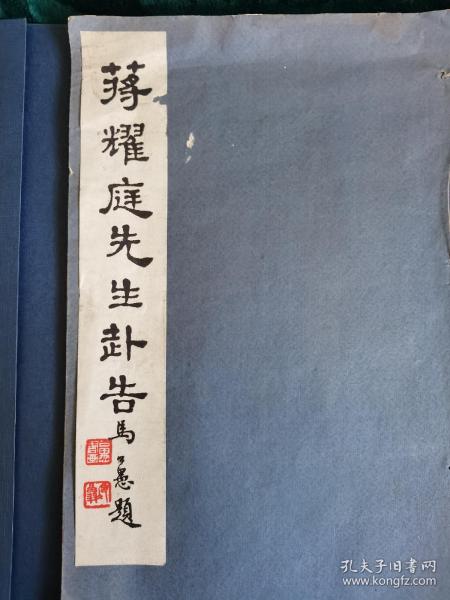 蒋耀庭先生赴告
馬公愚題
孔夫子旧书网
www.kongfz.com